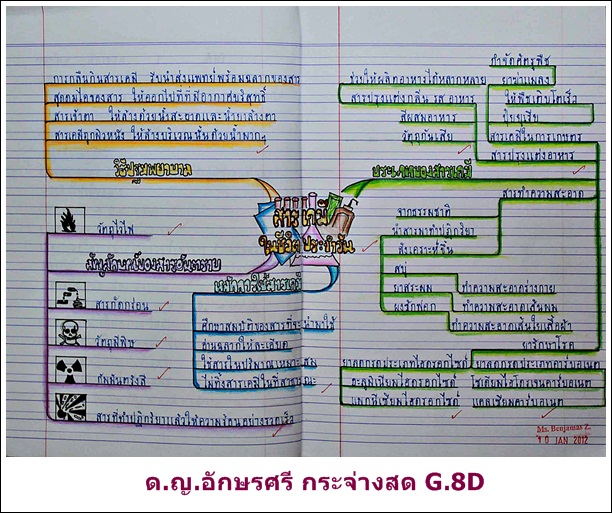 การกลืนกินสารเคมี รีบนำส่งแพทย์พร้อมฉลากของสาร
สูดดมไอของสาร ให้ออกไปที่ที่มีอากาศบริสุทธิ์
สารเข้าตา ให้ล้างด้วยน้ำสะอาดและน้ำยาล้างตา
สารเคมีถูกผิวหนัง ให้ล้างบริเวณนั้นด้วยน้ำมากๆ
วิธีปฐมพยาบาล
วัตถุไวไฟ
สัญลักษณ์ของสารอันตราย
สารกัดกร่อน
วัตถุมีพิษ
กัมมันตรังสี
สารที่ทำปฏิกิริยาแล้วให้ความร้อนอย่างรวดเร็ว
สารเคมี
ในชีวิตประจำวัน
หลักการใช้สารเคมี
ศึกษาสมบัติของสารที่จะนำมาใช้
อ่านฉลากให้ละเอียด
ใช้สารในปริมาณเหมาะสม
ไม่ทิ้งสารเคมีในที่สาธารณะ
กำจัดศัตรูพืช
ยาฆ่าแมลง
ให้พืชเติบโตเร็ว
ปุ๋ยยูเรีย
สารเคมีในการเกษตร
ช่วยให้ผลิตอาหารได้หลากหลาย
สารปรุงแต่งกลิ่น รส อาหาร
สีผสมอาหาร
วัตถุกันเสีย
สารปรุงแต่งอาหาร
ประเภทของสารเคมี
สารทำความสะอาด
จากธรรมชาติ
นำสารมาทำปฏิกิริยา
สังเคราะห์ขึ้น
สบู่
ยาสระผม
ผงซักฟอก
ทำความสะอาดร่างกาย
ทำความสะอาดเส้นผม
ทำความสะอาดเส้นใยเสื้อผ้า
ยารักษาโรค
ยาลดกรดประเภทไฮดรอกไซด์
ยาลดกรดประเภทคาร์บอเนต
อะลูมิเนียมไฮดรอกไซด์
โซเดียมไฮโดรเจนคาร์บอเนต
แมกนีเซียมไฮดรอกไซด์
แคลเซียมคาร์บอเนต
Ms. Benjamas Z.
10 JAN 2012
ด.ญ.อักษรศรี กระจ่างสด G.8D